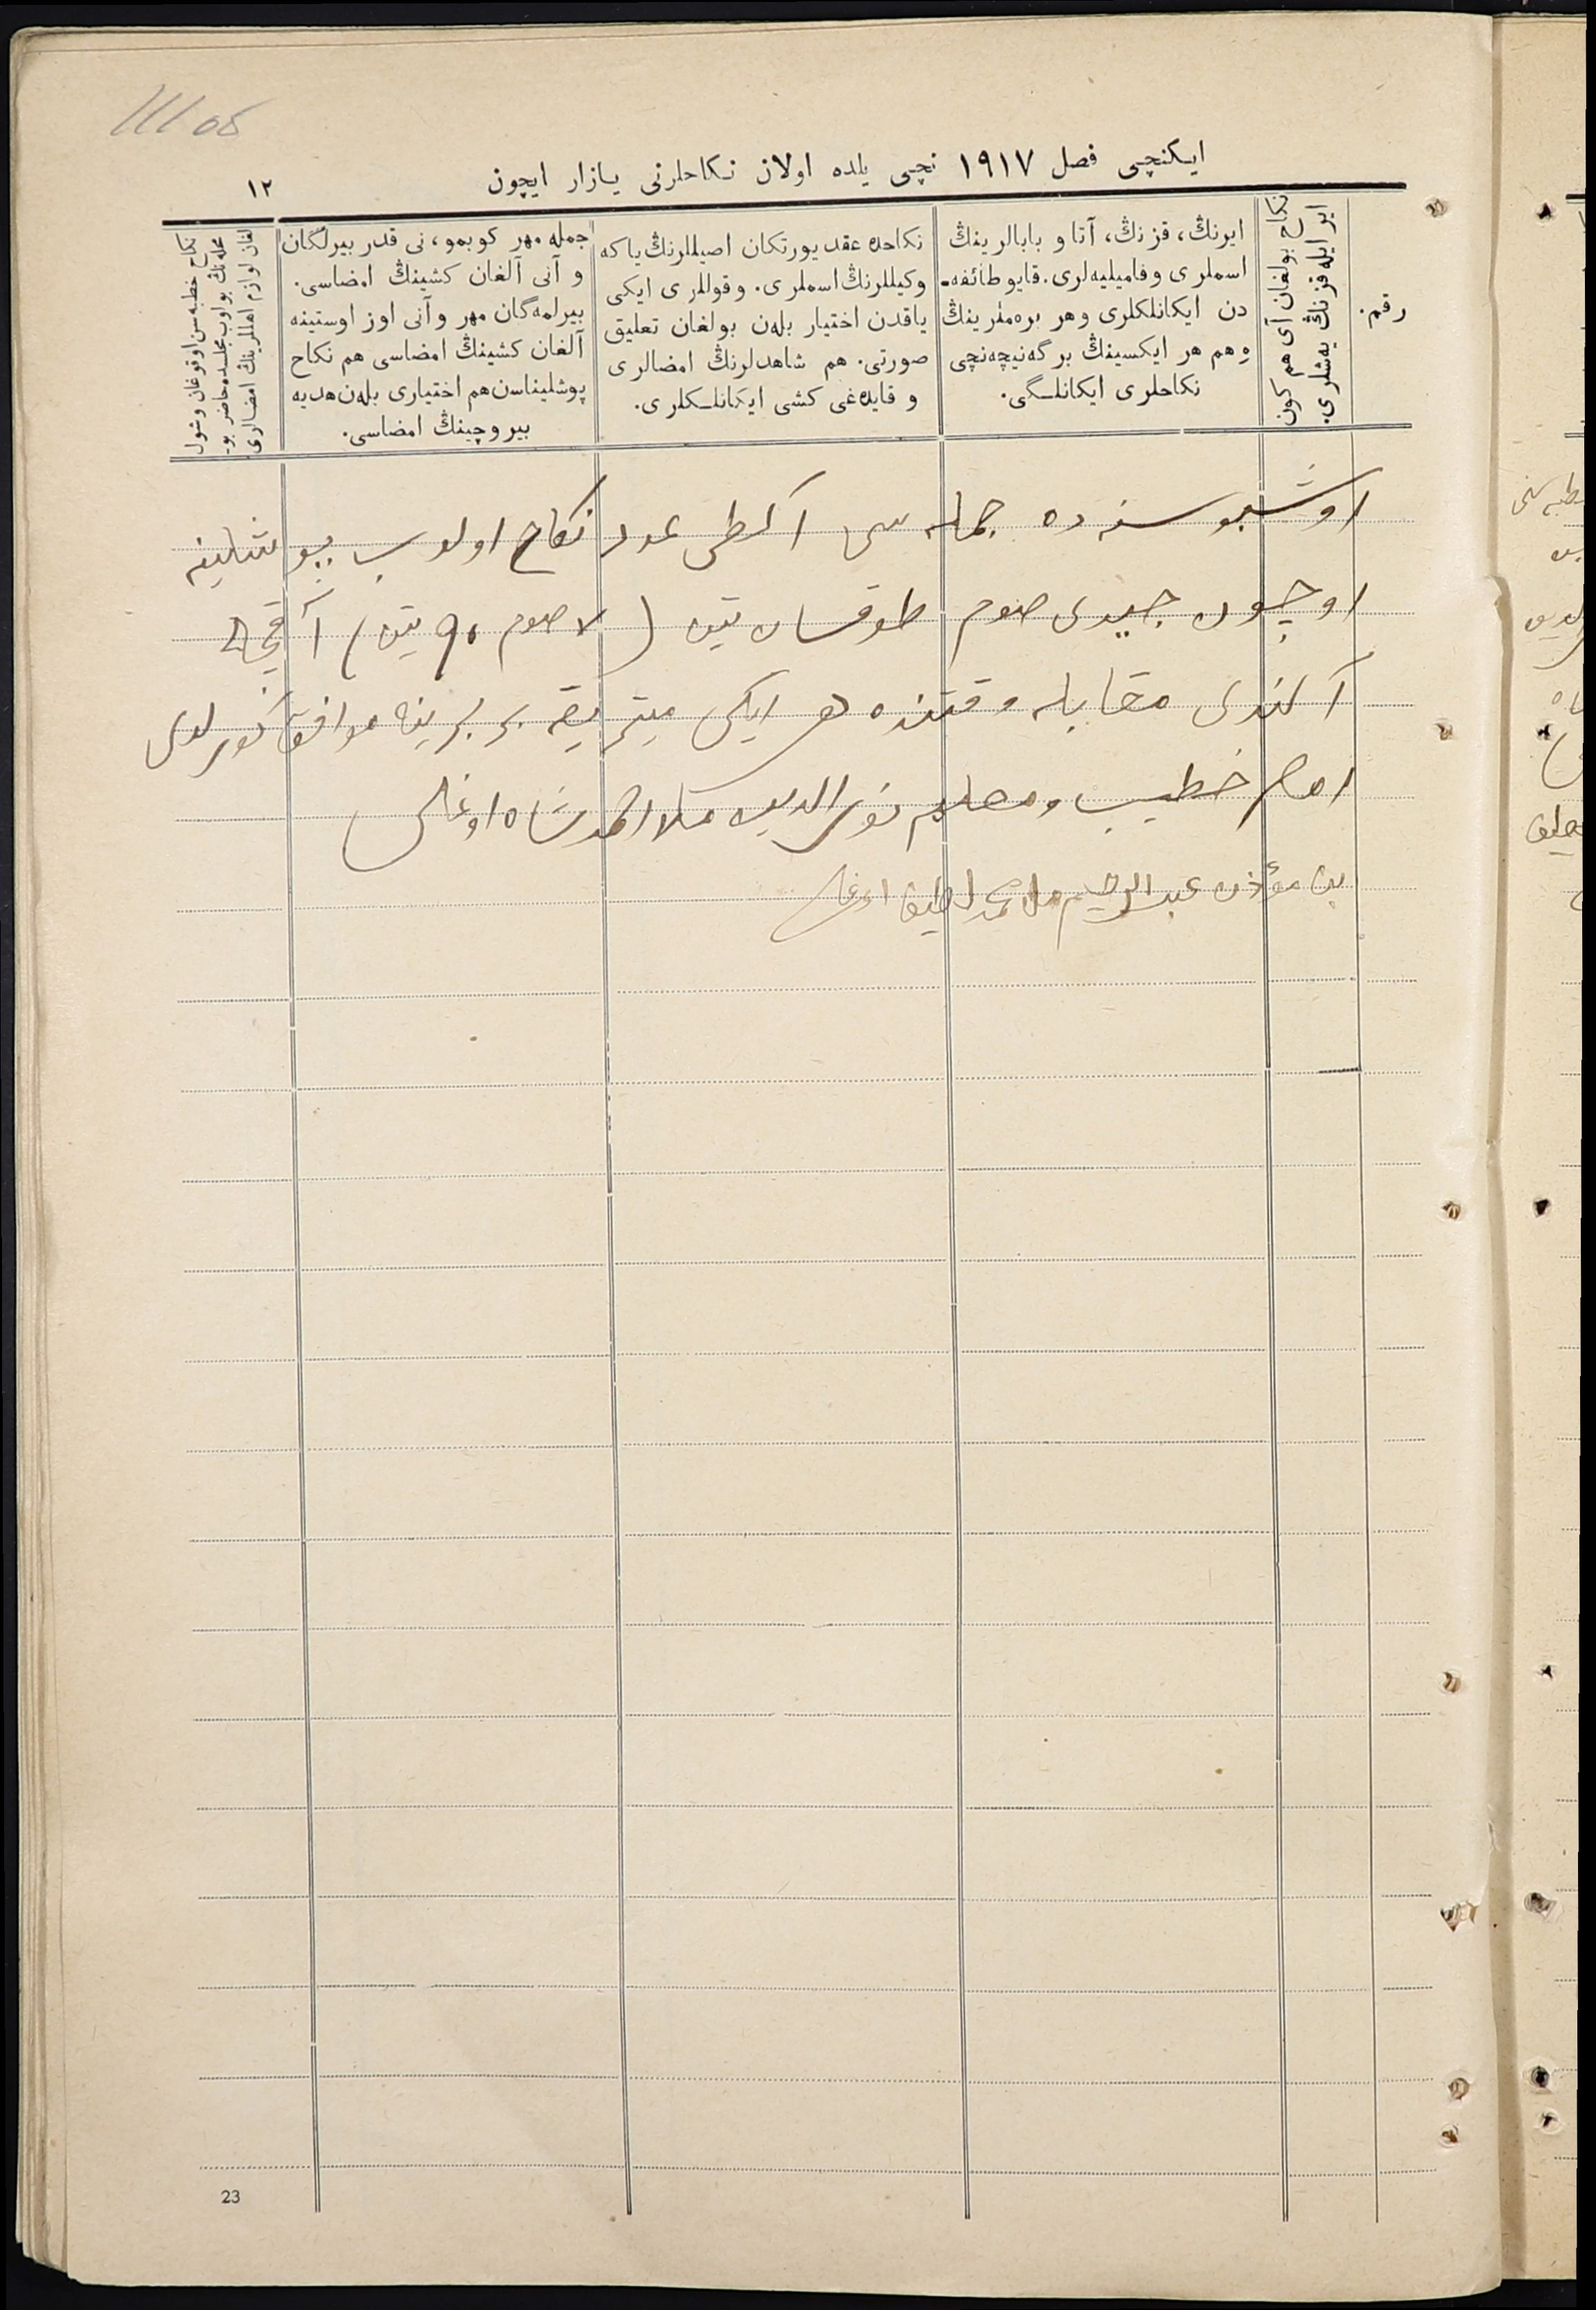 ايكنچی فصل ١٩١٧ نچی يلده اولان نكاحلرنی يازار ايچون
١٢
رقم.
اير ايله قزنڭ يه‌شلری.
نكاح بولغان آی هم كون
ايرنڭ، قزنڭ، آتا و بابالرينڭ
اسملری وفاميليه‌لری. قايو طائفه‌ـ
دن ايكانلكلری وهر برەملرينڭ
وهم هر ايكسينڭ برگه‌نيچه‌نچی
نكاحلری ايكانلـگی.
نكاحده عقد يورتكان اصيللرنڭ ياكه
وكيللرنڭ اسملری. و قوللری ايكی
ياقدن اختيار بله‌ن بولغان تعليق
صورتی. هم شاهدلرنڭ امضالری
و قايده‌غی كشی ايكانلـكلری.
جمله مهر كوبمو، نی قدر بيرلگان
و آنی آلغان كشينڭ امضاسی.
بيرلمه‌گان مهر و آنی اوز اوستينه
آلغان كشينڭ امضاسی هم نكاح
پوشليناسن هم اختياری بله‌ن هديه
بيروچينڭ امضاسی.
نكاح خطبه‌سن اوقوغان وشول
محله‌نڭ بولوب مجلسده حاضر بو
لغان لوازم اهللرينڭ امضالری
اوشبو سنه ده جمله سی آلطی عدد نكاح اولوب پوشلينه
اوچون جيدی صوم طوقسان تين (٧ صوم ٩٠ تين) آقچه
آلندی مقابله وقتنده هر ايكی ميتريقه بر برينه موافق كورلدی
امام خطيب ومعلم نورالدين ملا احمدشاه اوغلی
بن مؤذن عبدالرحيم ملا محمد لطيف اوغلی
23